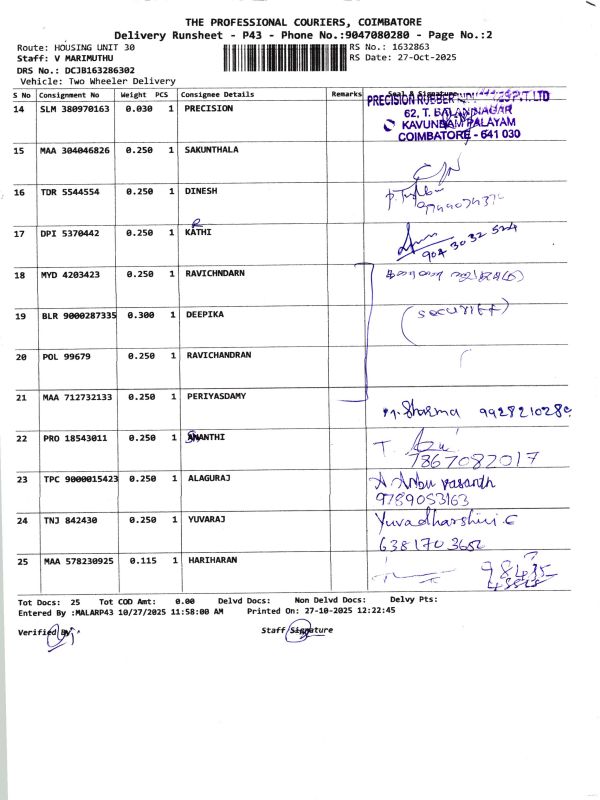 THE PROFESSIONAL COURIERS, COIMBATORE
Delivery Runsheet - P43 - Phone No.:9047080280 - Page No.:2
Route: HOUSING UNIT 30
RS No.: 1632863
Staff: V MARIMUTHU
RS Date: 27-Oct-2025
DRS No.: DCJB163286302
Vehicle: Two Wheeler Delivery
S No Consignment No Weight PCS Consignee Details Remarks Seal & Signature
14 SLM 380970163 0.030 1 PRECISION
PRECISION RUBBER PVT. LTD
62, T. BALAN NAGAR
KAVUNDAM PALAYAM
COIMBATORE - 641 030
15 MAA 304046826 0.250 1 SAKUNTHALA
16 TDR 5544554 0.250 1 DINESH
17 DPI 5370442 0.250 1 KATHI
904 3032 524
18 MYD 4203423 0.250 1 RAVICHNDARN
19 BLR 9000287335 0.300 1 DEEPIKA
(security)
20 POL 99679 0.250 1 RAVICHANDRAN
21 MAA 712732133 0.250 1 PERIYASDAMY
M. Sharma
22 PRO 18543011 0.250 1 ANANTHI
T.
7867082017
23 TPC 9000015423 0.250 1 ALAGURAJ
A Anbu vasanth
9789053163
24 TNJ 842430 0.250 1 YUVARAJ
Yuvadharshini.G
6381703652
25 MAA 578230925 0.115 1 HARIHARAN
98435
Tot Docs: 25 Tot COD Amt: 0.00 Delvd Docs: Non Delvd Docs: Delvy Pts:
Entered By :MALARP43 10/27/2025 11:58:00 AM Printed On: 27-10-2025 12:22:45
Verified By
Staff Signature